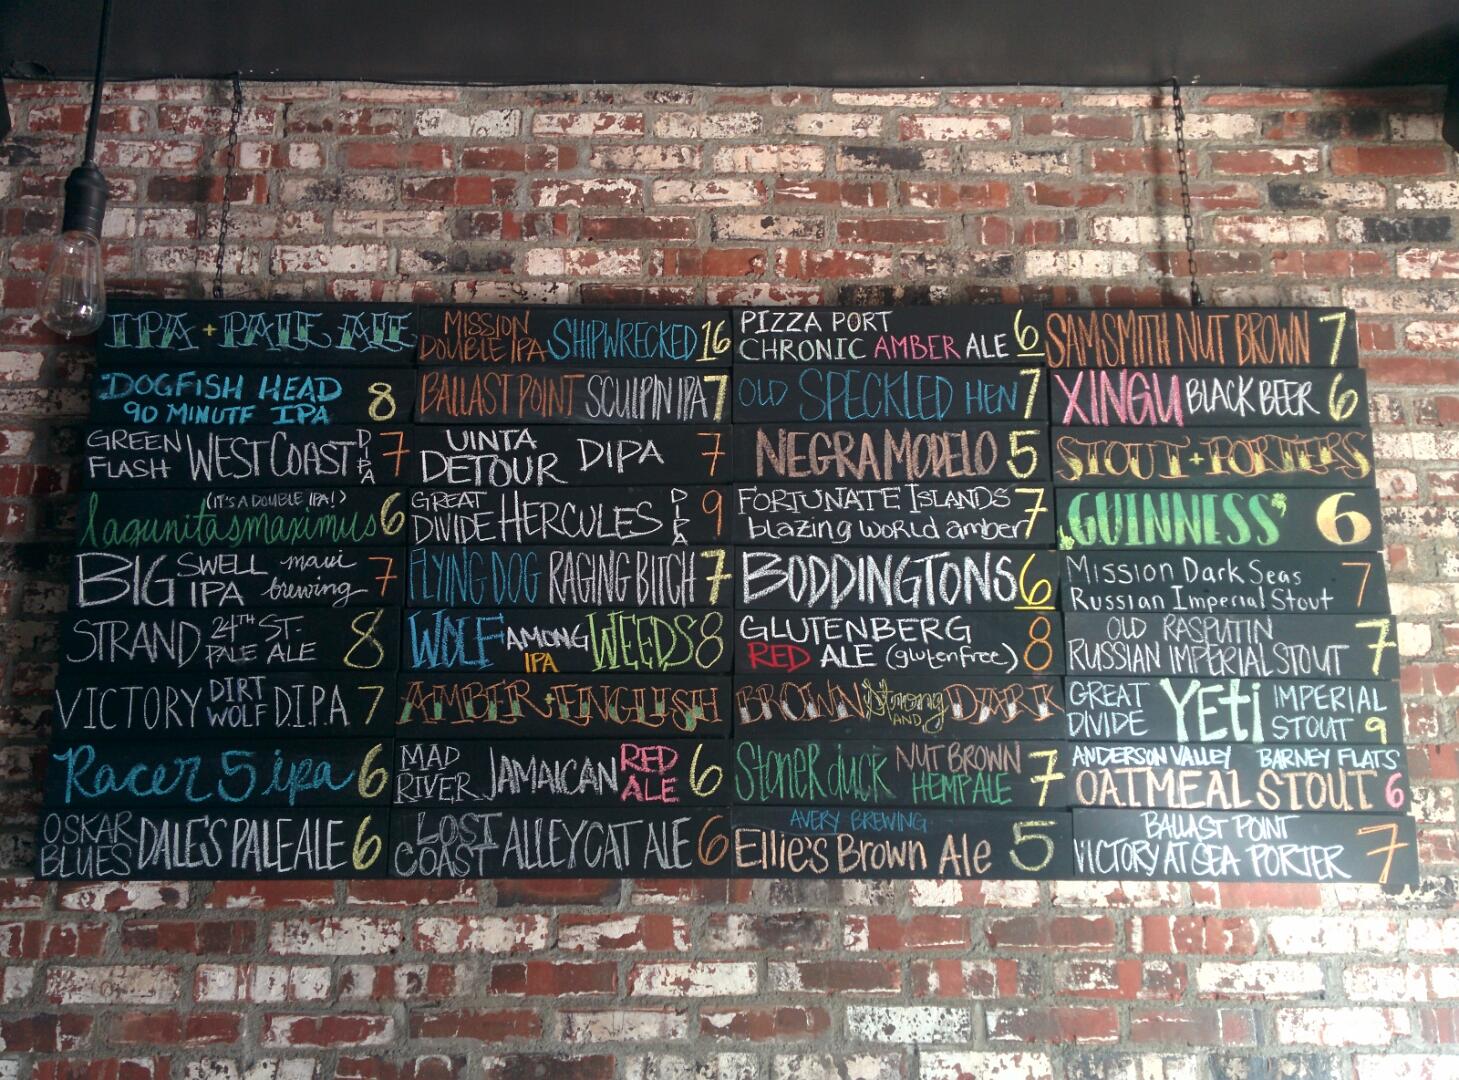 IPA + PALE ALE
DOGFISH HEAD
90 MINUTE IPA 8
GREEN FLASH WEST COAST DIPA 7
(IT'S A DOUBLE IPA!)
lagunitas maximus 6
BIG SWELL IPA maui brewing 7
STRAND 24TH ST. PALE ALE 8
VICTORY DIRT WOLF D.I.P.A 7
Racer 5 ipa 6
OSKAR BLUES DALE'S PALE ALE 6
MISSION DOUBLE IPA SHIPWRECKED 16
BALLAST POINT SCULPIN IPA 7
UINTA DETOUR DIPA 7
GREAT DIVIDE HERCULES DIPA 9
FLYING DOG RAGING BITCH 7
WOLF AMONG WEEDS IPA 8
AMBER + ENGLISH
MAD RIVER JAMAICAN RED ALE 6
LOST COAST ALLEYCAT ALE 6
PIZZA PORT
CHRONIC AMBER ALE 6
OLD SPECKLED HEN 7
NEGRA MODELO 5
FORTUNATE ISLANDS
blazing world amber 7
BODDINGTONS 6
GLUTENBERG
RED ALE (glutenfree) 8
BROWN Strong AND DARK
Stoner duck NUT BROWN HEMP ALE 7
AVERY BREWING
Ellie's Brown Ale 5
SAM SMITH NUT BROWN 7
XINGU BLACK BEER 6
STOUT + PORTERS
GUINNESS 6
Mission Dark Seas
Russian Imperial Stout 7
OLD RASPUTIN
RUSSIAN IMPERIAL STOUT 7
GREAT DIVIDE YETi IMPERIAL STOUT 9
ANDERSON VALLEY BARNEY FLATS
OATMEAL STOUT 6
BALLAST POINT
VICTORY AT SEA PORTER 7